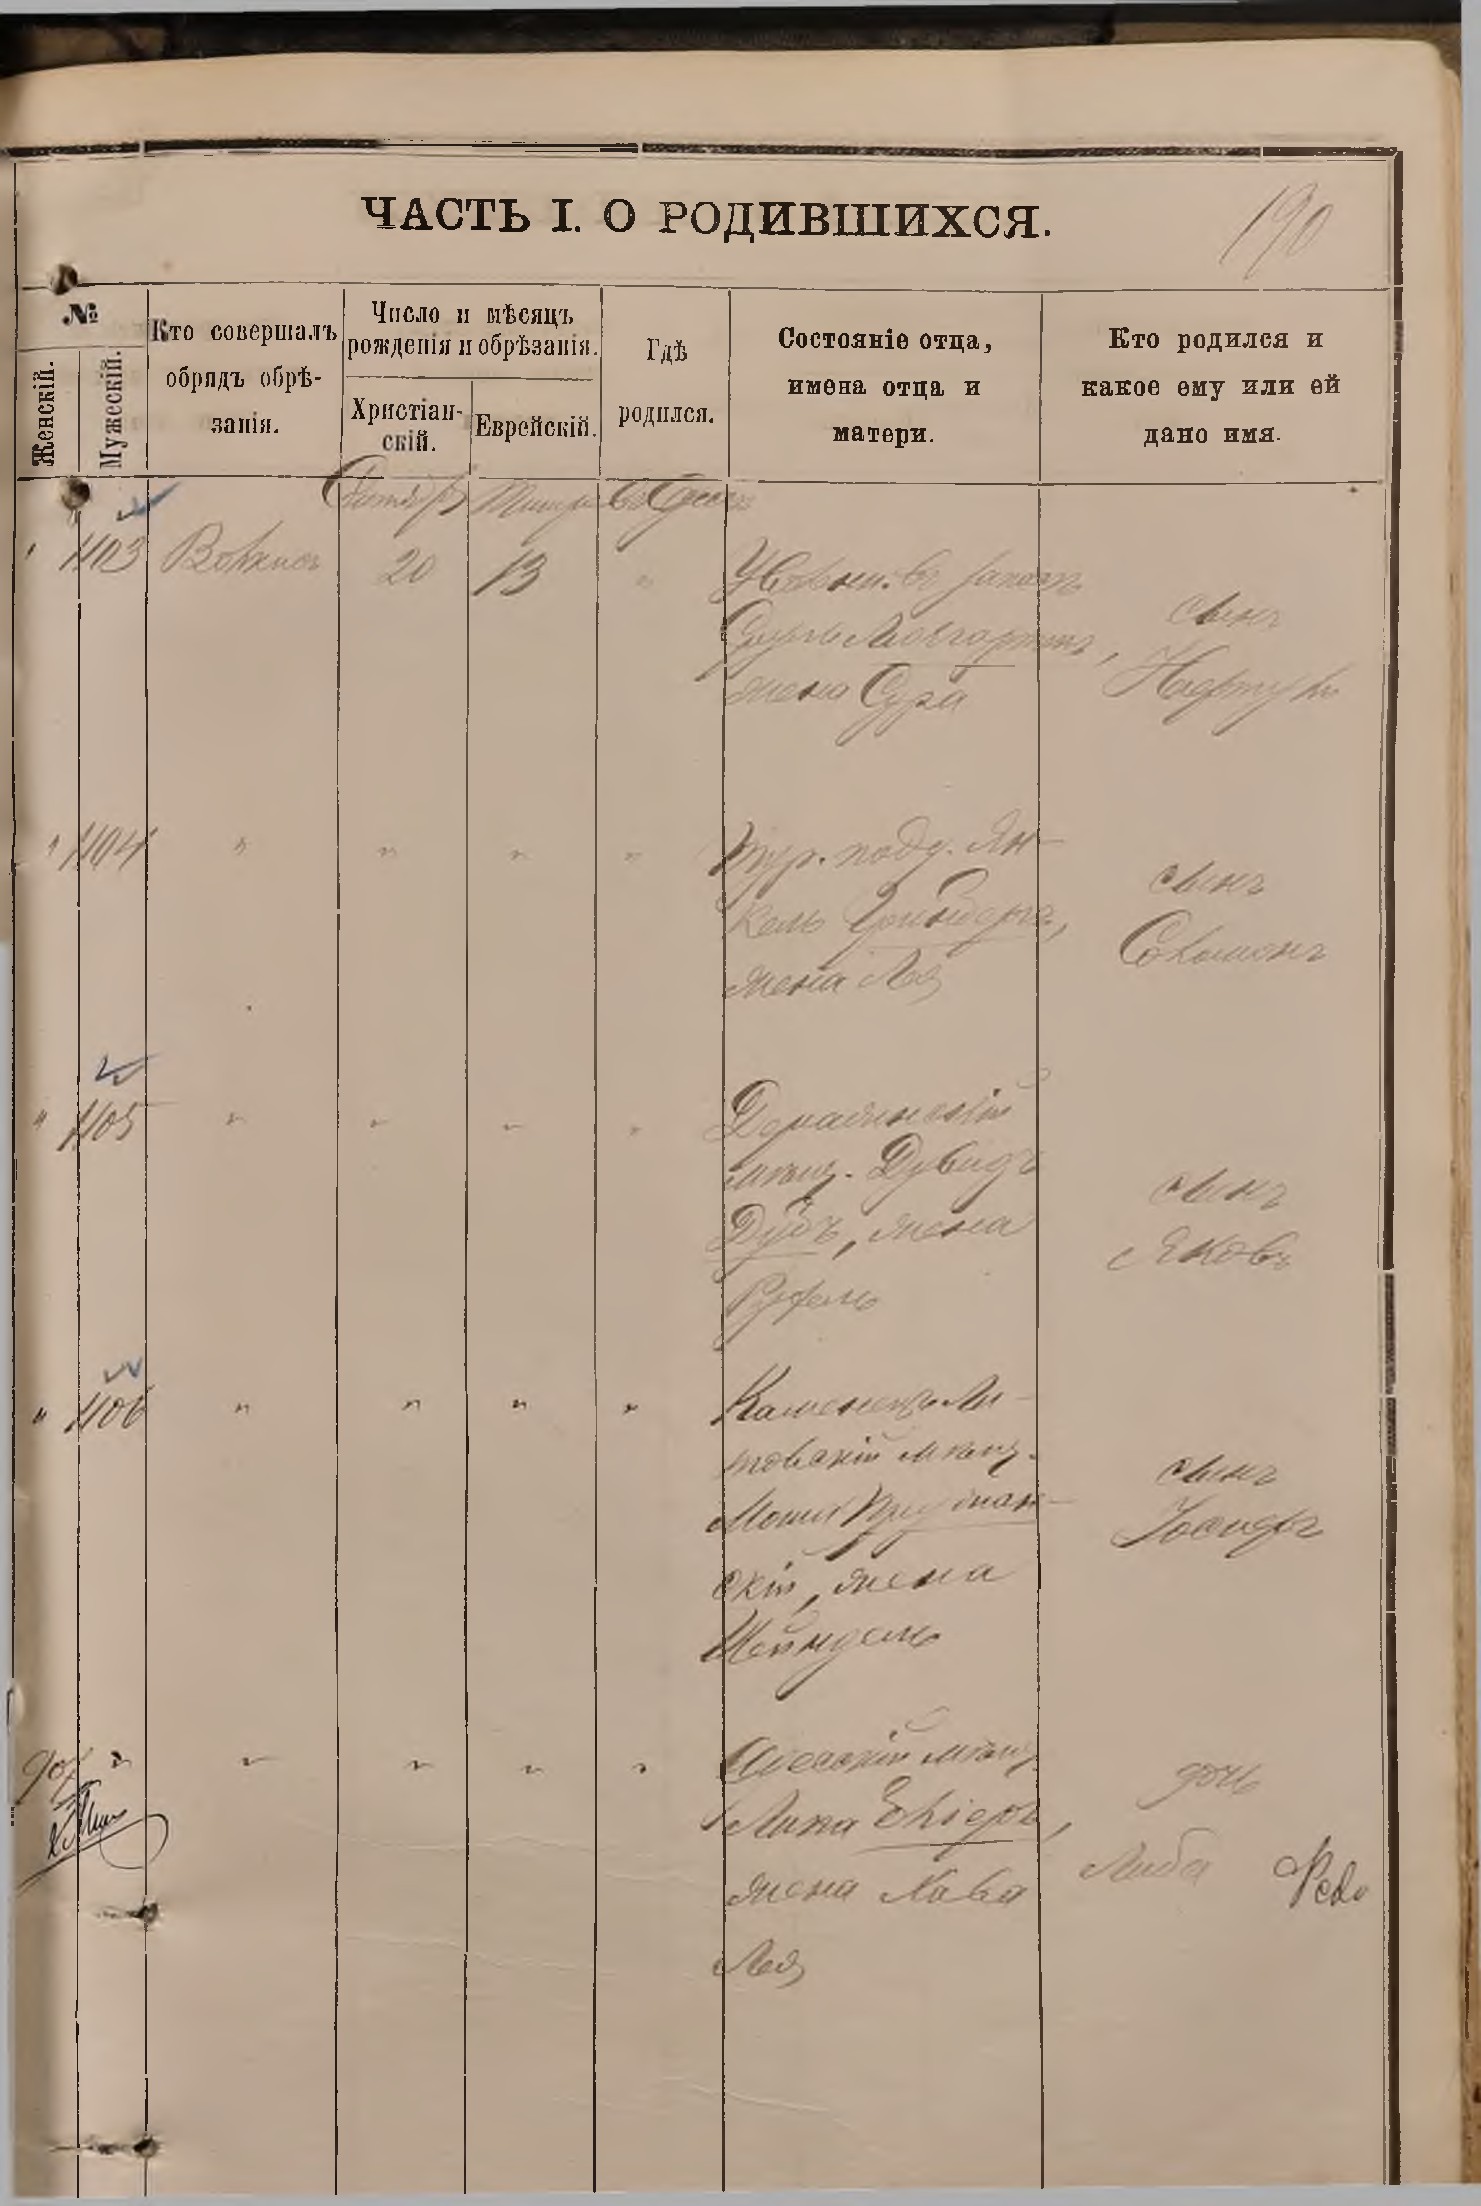 ЧАСТЬ I. О РОДИВШИХСЯ.
190
№
Женскій.
Мужескій.
Кто совершалъ
обрядъ обрѣ-
занія.
Число и мѣсяцъ
рожденія и обрѣзанія.
Христіан-
скій.
Еврейскій.
Гдѣ
родился.
Состояніе отца,
имена отца и
матери.
Кто родился и
какое ему или ей
дано имя.
Октябр Тишри въ Одессѣ
" 1103 20 13 "
Уволен. въ запасъ
жена Сура
сынъ
Нафтула
" 1104 " " " "
Тур. подд. Ян-
кель Гринбергъ,
жена Лея
сынъ
Соломонъ
" 1105 " " " "
Деражнскій
мѣщ. Дувидъ
Дубъ, жена
Рухель
сынъ
Яковъ
" 1106 " " " "
Каменецъ Ли-
товскій мѣщ.
Мошко Пружан-
скій, жена
Шейндель
сынъ
Іосифъ
907 " " " " "
Одесскій мѣщ.
Липа
жена Хава
Лея
дочь
Либа